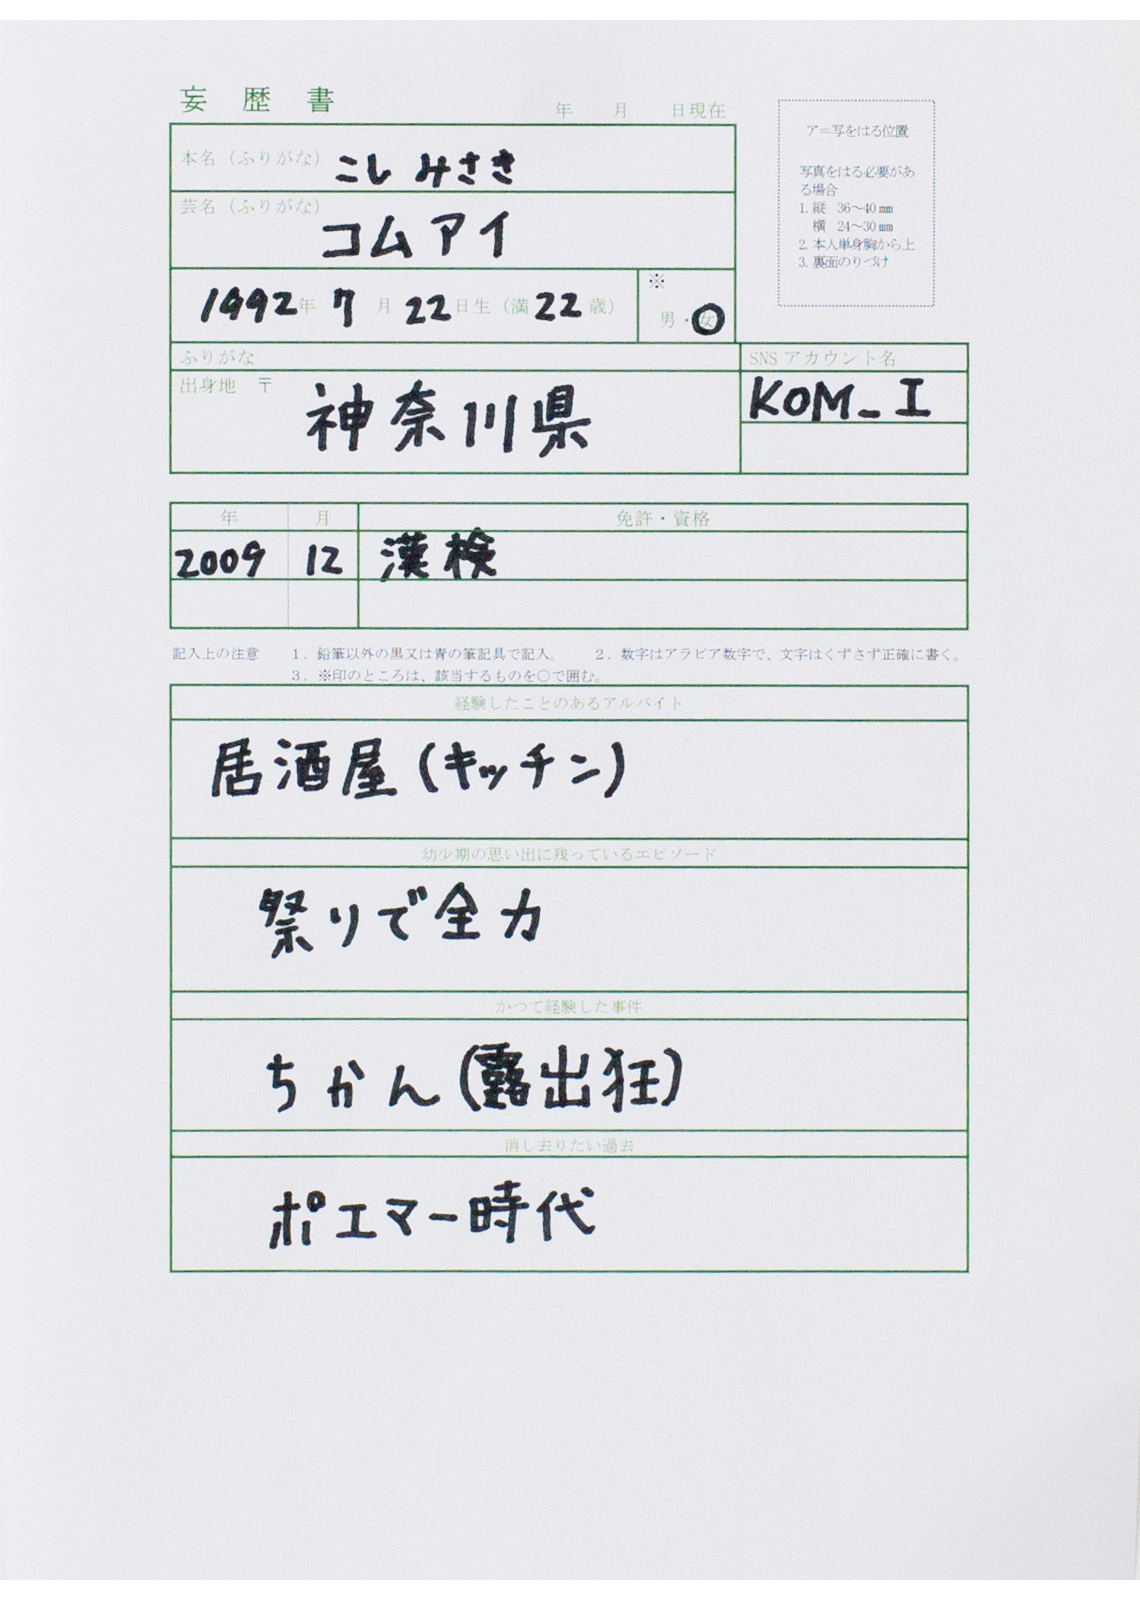 妄歴書
年 月 日現在
ア=写をはる位置
写真をはる必要があ
る場合
1. 縦 36〜40㎜
横 24〜30㎜
2. 本人単身胸から上
3. 裏面のりづけ
本名（ふりがな） こし みさき
芸名（ふりがな） コムアイ
1992年 7月 22日生（満 22歳）
※
男・女
ふりがな
SNS アカウント名
出身地 〒 神奈川県
KOM_I
年 月 免許・資格
2009 12 漢検
記入上の注意 1．鉛筆以外の黒又は青の筆記具で記入。 2．数字はアラビア数字で、文字はくずさず正確に書く。
3．※印のところは、該当するものを○で囲む。
経験したことのあるアルバイト
居酒屋(キッチン)
幼少期の思い出に残っているエピソード
祭りで全力
かつて経験した事件
ちかん(露出狂)
消し去りたい過去
ポエマー時代